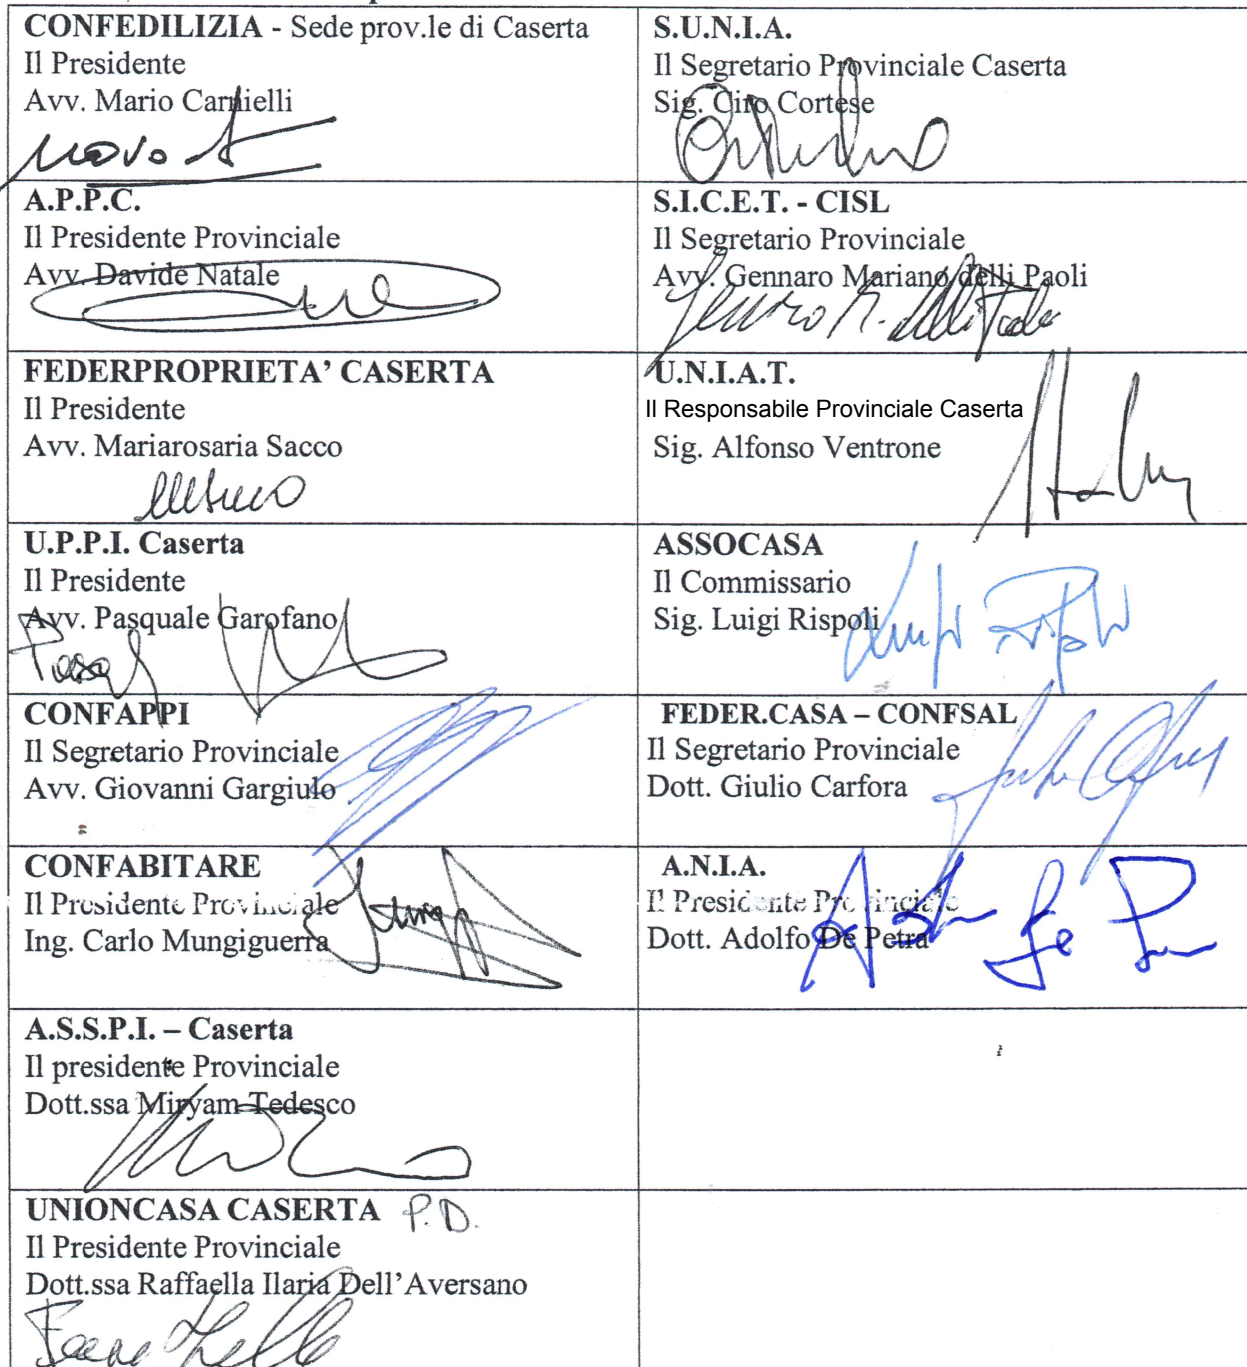 CONFEDILIZIA - Sede prov.le di Caserta
Il Presidente
Avv. Mario Carnielli
S.U.N.I.A.
Il Segretario Provinciale Caserta
Sig. Ciro Cortese
A.P.P.C.
Il Presidente Provinciale
Avv. Davide Natale
S.I.C.E.T. - CISL
Il Segretario Provinciale
Avv. Gennaro Mariano delli Paoli
FEDERPROPRIETA' CASERTA
Il Presidente
Avv. Mariarosaria Sacco
U.N.I.A.T.
Il Responsabile Provinciale Caserta
Sig. Alfonso Ventrone
U.P.P.I. Caserta
Il Presidente
Avv. Pasquale Garofano
ASSOCASA
Il Commissario
Sig. Luigi Rispoli
CONFAPPI
Il Segretario Provinciale
Avv. Giovanni Gargiulo
FEDER.CASA – CONFSAL
Il Segretario Provinciale
Dott. Giulio Carfora
CONFABITARE
Il Presidente Provinciale
Ing. Carlo Mungiguerra
A.N.I.A.
Il Presidente Provinciale
Dott. Adolfo De Petra
A.S.S.P.I. – Caserta
Il presidente Provinciale
Dott.ssa Miryam Tedesco
UNIONCASA CASERTA P.D.
Il Presidente Provinciale
Dott.ssa Raffaella Ilaria Dell'Aversano